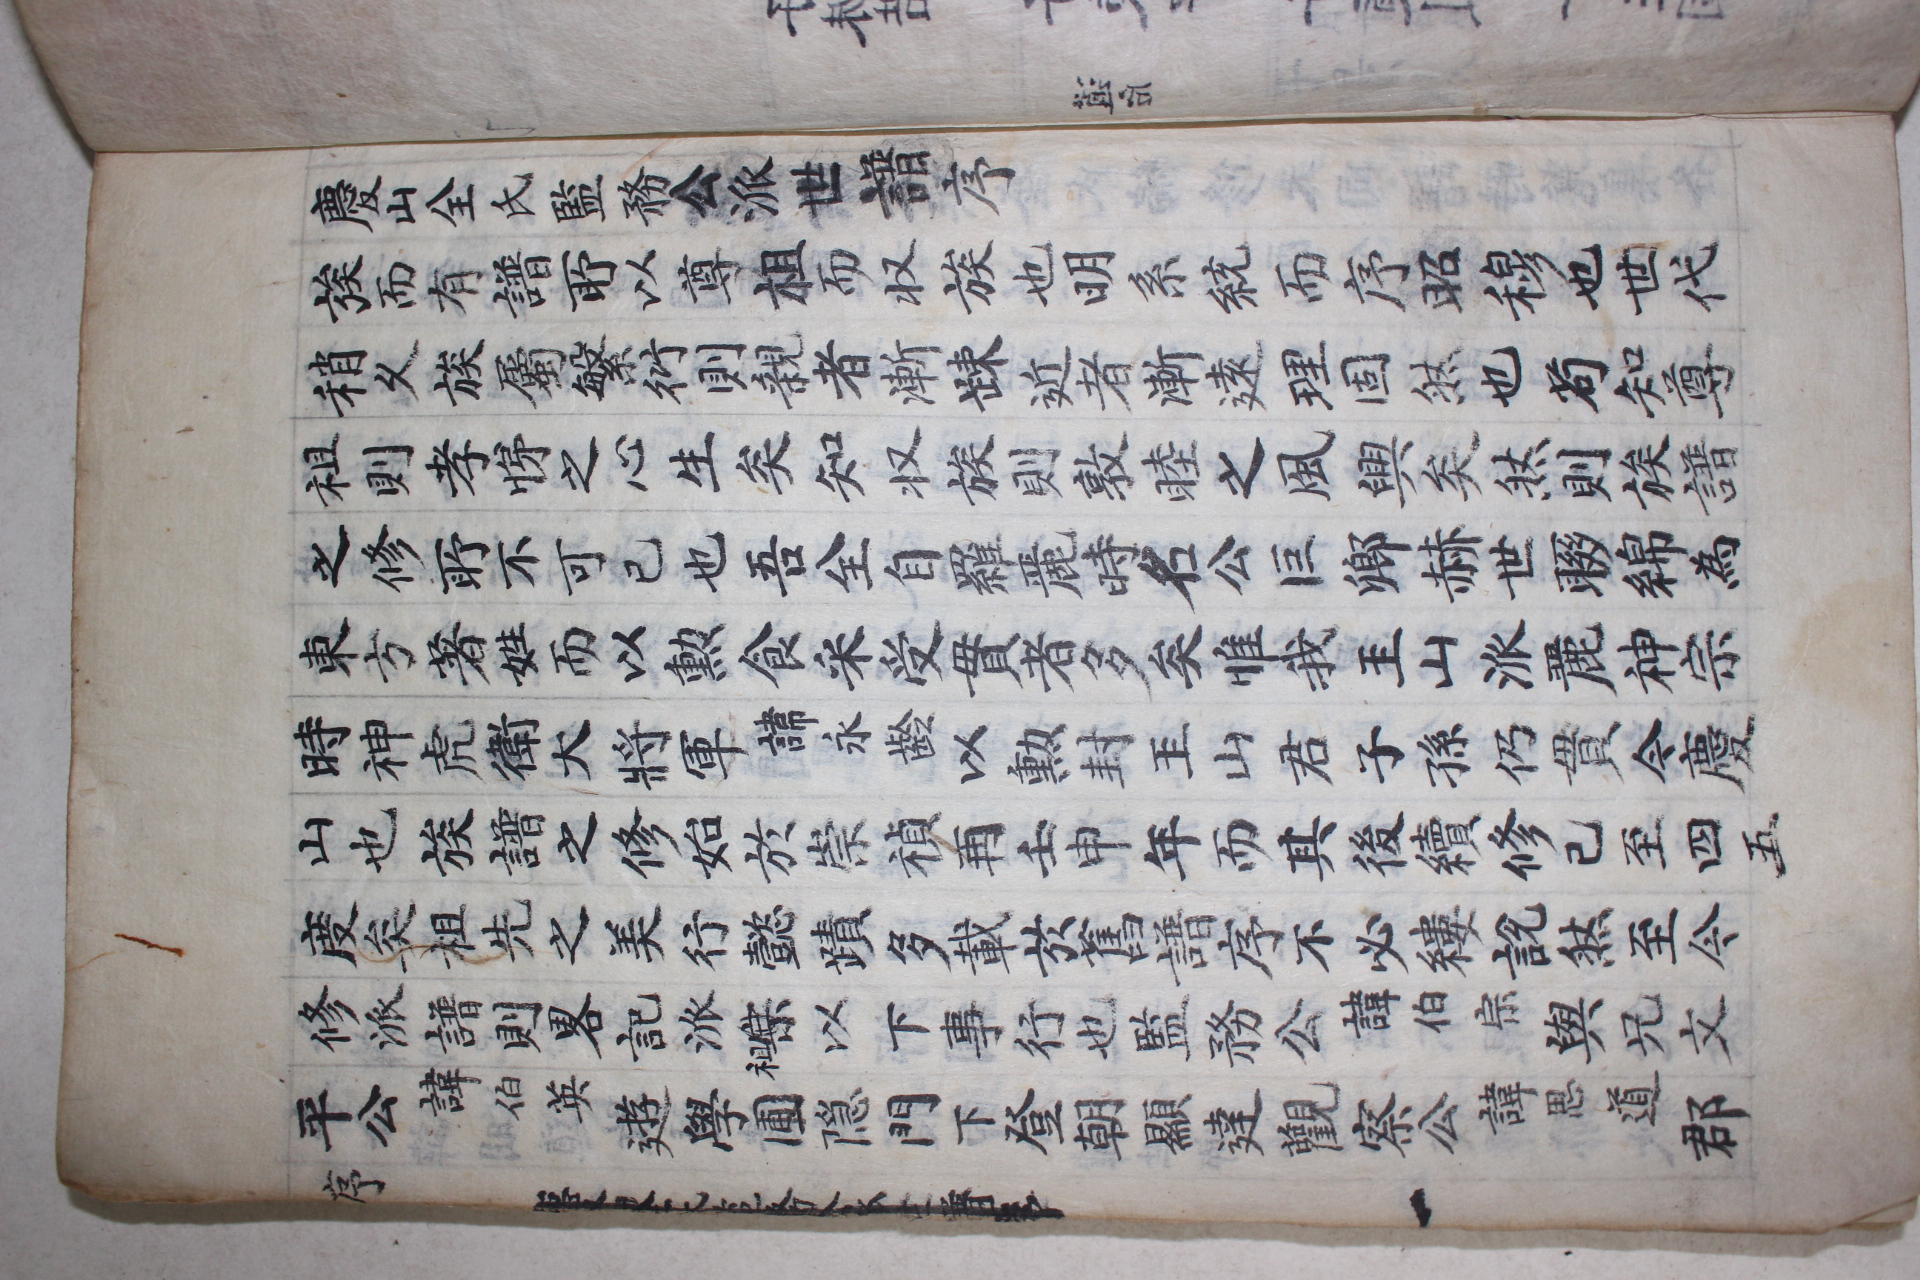 慶山全氏監務公派世譜序
族而有譜所以尊祖而収族也明系統而序昭穆也世代
稍久族屬繁衍則親者漸踈近者漸遠理固然也苟知尊
祖則孝悌之心生矣知収族則敦睦之風興矣然則族譜
之修所不可已也吾全自羅麗時名公巨卿赫世聯綿為
東方著姓而以勲食采受貫者多矣惟我王山派麗神宗
時神虎衛大將軍諱永齡以勲封王山君子孫仍貫今慶
山也族譜之修始於崇禎再壬申年而其後續修已至四五
度矣祖先之美行懿蹟多載於舊譜序不必縷説然至今
修派譜則畧記派祖以下事行也監務公諱伯宗與兄文
平公諱伯英遊學圃隠門下登朝顯達觀察公諱思道郡
序
一